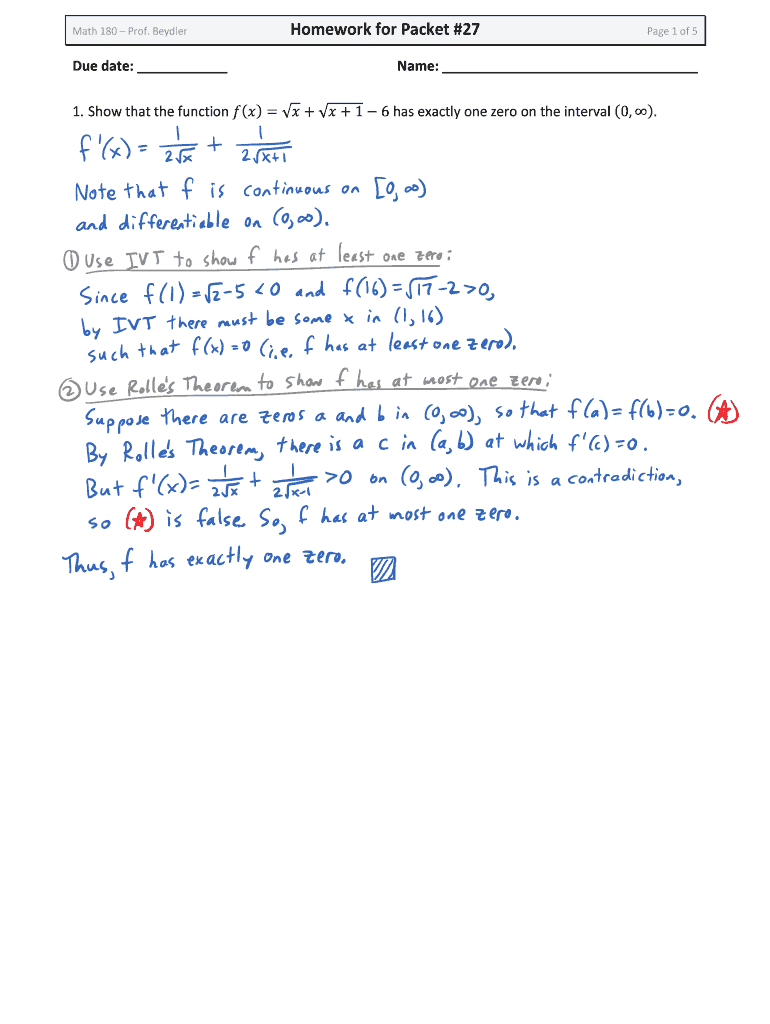 Math 180 – Prof. Beydler Homework for Packet #27 Page 1 of 5
Due date: ____________ Name: __________________________________
1. Show that the function f(x) = √x + √(x + 1) − 6 has exactly one zero on the interval (0, ∞).
f'(x) = 1/(2√x) + 1/(2√(x+1))
Note that f is continuous on [0, ∞)
and differentiable on (0, ∞).
① Use IVT to show f has at least one zero:
Since f(1) = √2 - 5 < 0 and f(16) = √17 - 2 > 0,
by IVT there must be some x in (1, 16)
such that f(x) = 0 (i.e. f has at least one zero).
② Use Rolle's Theorem to show f has at most one zero:
Suppose there are zeros a and b in (0, ∞), so that f(a) = f(b) = 0. (★)
By Rolle's Theorem, there is a c in (a, b) at which f'(c) = 0.
But f'(x) = 1/(2√x) + 1/(2√(x-1)) > 0 on (0, ∞). This is a contradiction,
so (★) is false. So, f has at most one zero.
Thus, f has exactly one zero.